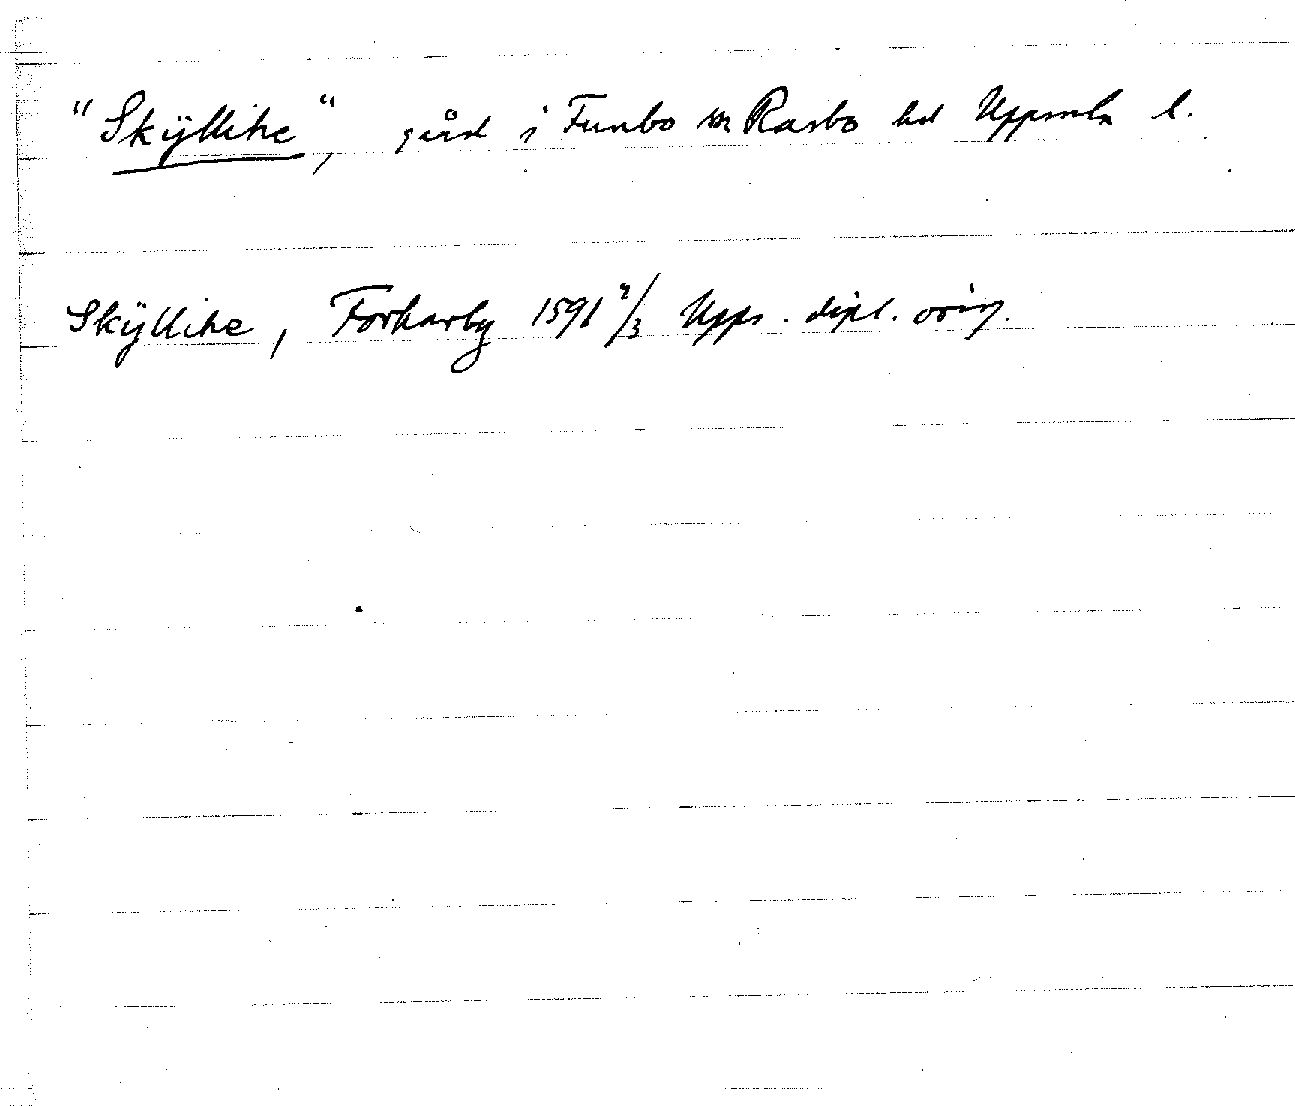 "Skÿllihe", gård i Funbo sn Rasbo hd Uppsala l.
Skÿllihe, Forkarby 1591 2/3 Upps. dipl. orig.